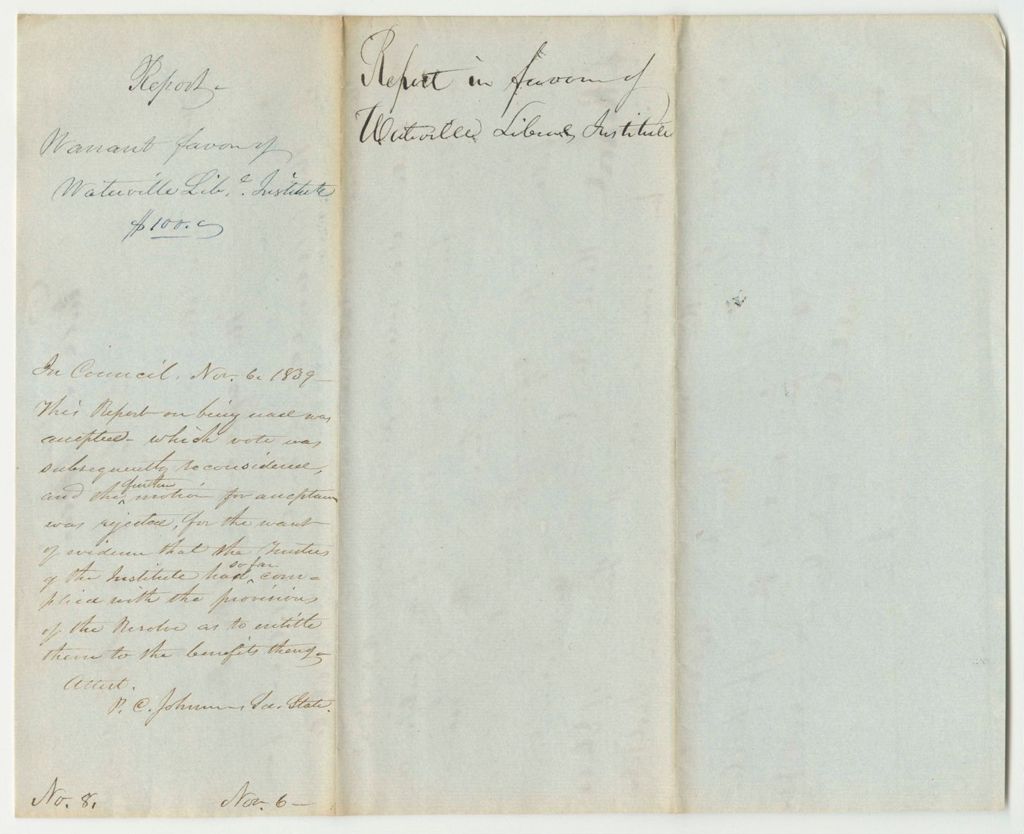 Report
Warrant favor of
Waterville Lib.l Institute
$100.
In Council. Nov. 6. 1839
This Report on being read was
accepted - which vote was
subsequently reconsidered,
and the question motion for acceptan
was rejected, for the want
of evidence that the Trustees
of the Institute had so far com=
plied with the provisions
of the Resolve as to entitle
them to the benefits thereof
Attest.
P. C. Johnson Sec. State.
No. 8. Nov. 6 -
Report in favour of
Waterville Liberal Institute